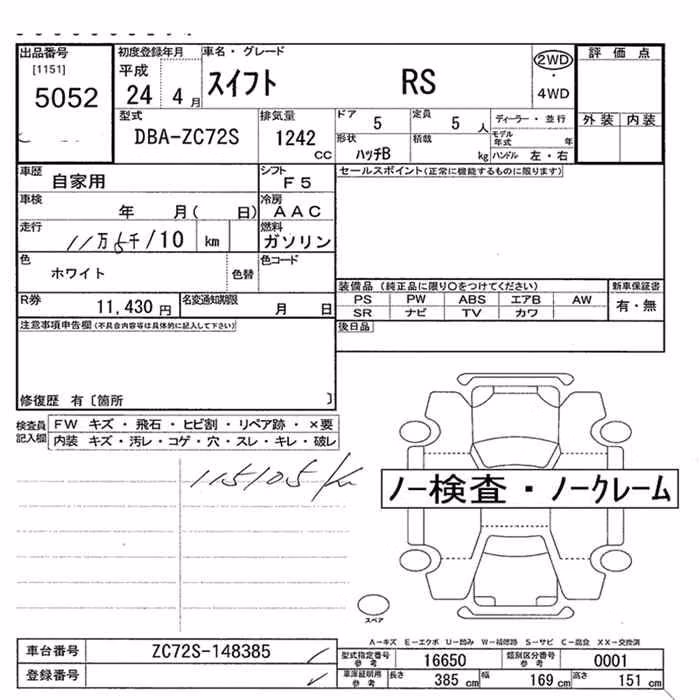 出品番号 初度登録年月 車名・グレード 2WD・4WD 評価点
[1151] 平成
5052 24 4月 スイフト RS
型式 排気量 ドア 5 定員 5人 ディーラー・並行 外装 内装
DBA-ZC72S 1242cc 形状 ハッチB 積載 kg モデル年式 年
ハンドル 左・右
車歴 自家用 シフト F5 セールスポイント(正常に機能するものに限ります)
車検 年 月( 日) 冷房 AAC
走行 11万5千/10 km 燃料 ガソリン
色 ホワイト 色替 色コード
装備品(純正品に限り〇をつけてください) 新車保証書
R券 11,430円 名変通知期限 月 日 PS PW ABS エアB AW 有・無
SR ナビ TV カワ
注意事項申告欄(不具合内容等は具体的に記入して下さい) 後日品
修復歴 有〔箇所 〕
検査員記入欄 FW キズ・飛石・ヒビ割・リペア跡・×要
内装 キズ・汚レ・コゲ・穴・スレ・キレ・破レ
115105km
ノー検査・ノークレーム
スペア
A-キズ E-エクボ U-凹み W-補修跡 S-サビ C-腐食 XX-交換済
車台番号 ZC72S-148385 型式指定番号参考 16650 類別区分番号参考 0001
登録番号 車庫証明用参考 長さ 385cm 幅 169cm 高さ 151cm